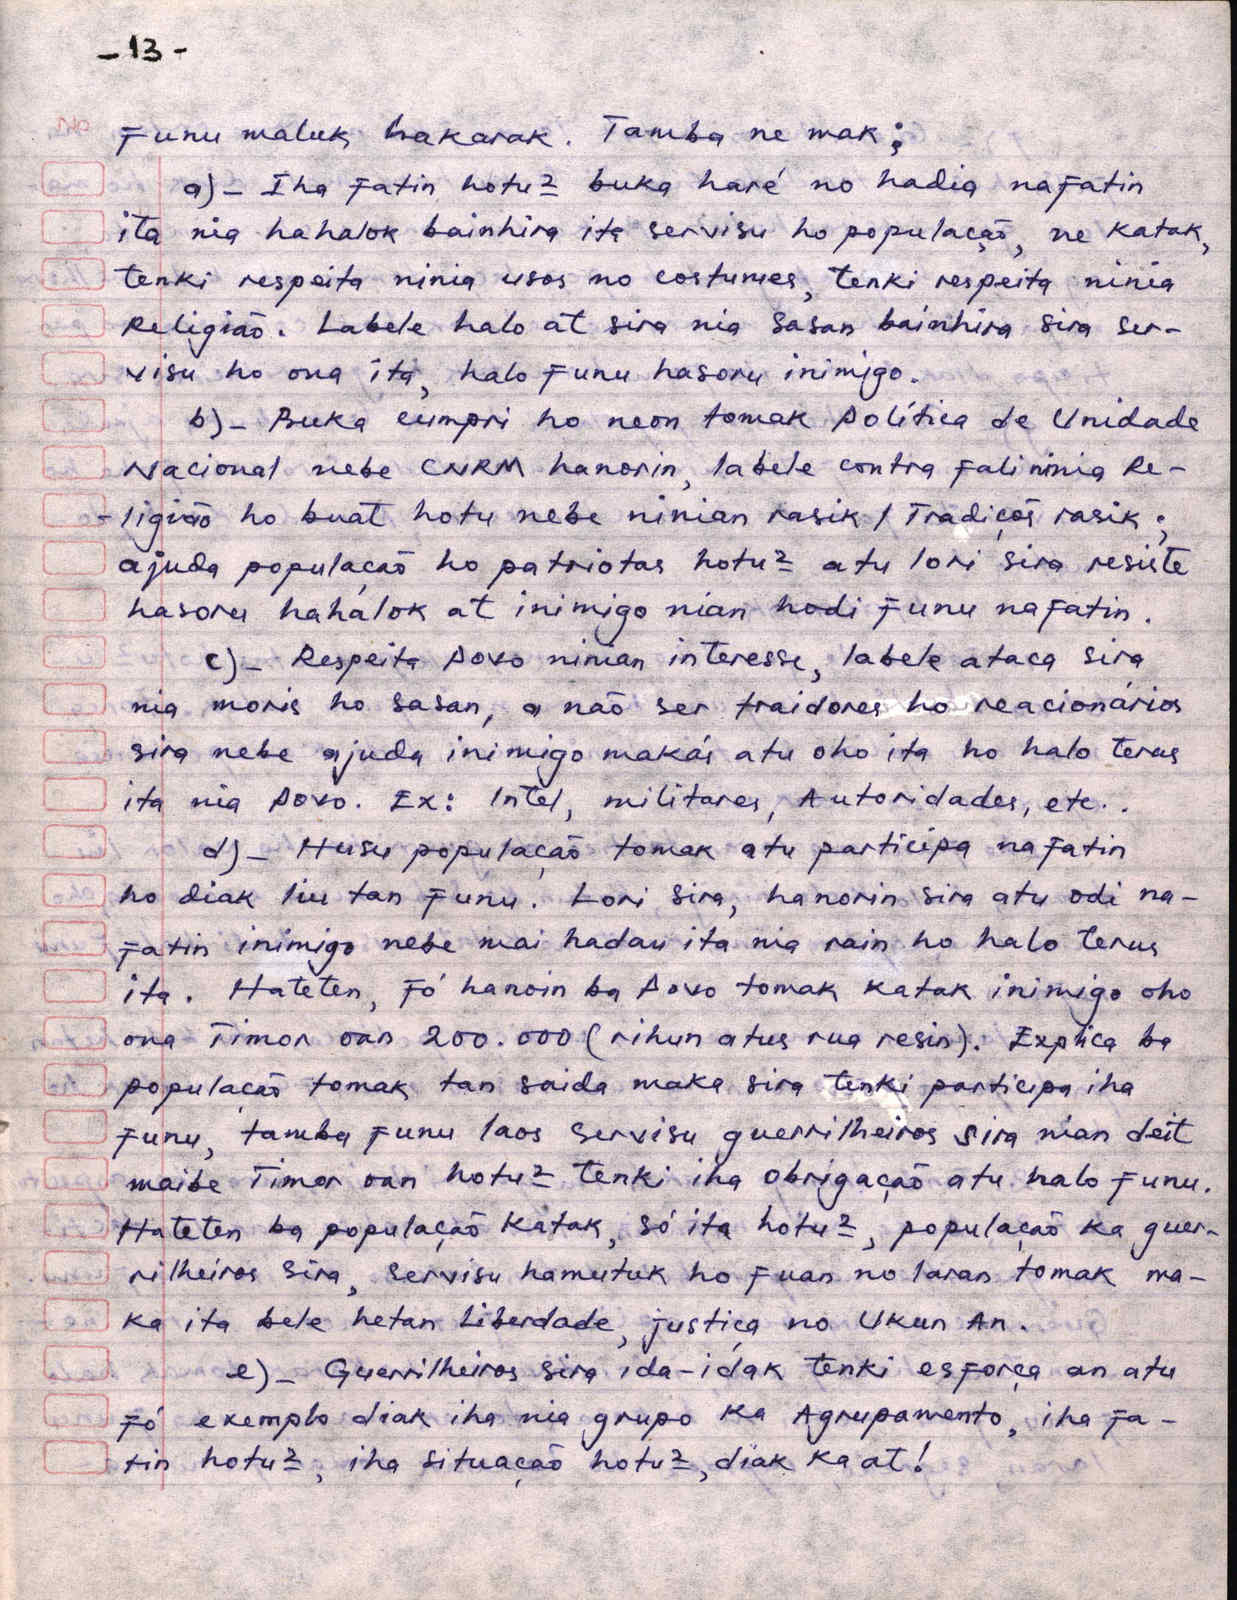 - 13 -
Funu maluk hakarak. Tamba ne mak;
a)_ Iha fatin hotu2 buka haré no hadia nafatin
ita nia hahalok bainhira ita servisu ho populaçaõ, ne katak,
tenki respeita ninia usos no costumes, tenki respeita ninia
Religiaõ. Labele halo at sira nia sasan bainhira sira ser-
visu ho ona ita, halo funu hasoru inimigo.
b)_ Buka cumpri ho neon tomak Política de Unidade
Nacional nebe CNRM hanorin, labele contra fali ninia Re-
-ligiaõ ho buat hotu nebe ninian rasik / Tradiçoẽs rasik;
ajuda populaçaõ ho patriotas hotu2 atu lori sira resiste
hasoru hahalok at inimigo nian hodi funu nafatin.
c)_ Respeita Povo ninian interesse, labele ataca sira
nia moris ho sasan, a naõ ser traidores ho reacionários
sira nebe ajuda inimigo makás atu oho ita ho halo terus
ita nia Povo. Ex: Intel, militares, Autoridades, etc..
d)_ Husu populaçaõ tomak atu participa nafatin
ho diak liu tan funu. Lori sira, hanorin sira atu odi na-
fatin inimigo nebe mai hadau ita nia rain ho halo terus
ita. Hateten, fó hanoin ba Povo tomak katak inimigo oho
ona Timor oan 200.000 (rihun atus rua resin). Explica ba
populaçaõ tomak tan saida maka sira tenki participa iha
funu, tamba funu laos servisu guerrilheiros sira nian deit
maibe Timor oan hotu2 tenki iha obrigaçaõ atu halo funu.
Hateten ba populaçaõ katak, só ita hotu2, populaçaõ ka guer-
rilheiros sira, servisu hamutuk ho fuan no laran tomak ma-
ka ita bele hetan Liberdade, justiça no Ukun An.
e)_ Guerrilheiros sira ida-idak tenki esforça an atu
fó exemplo diak iha nia grupo ka Agrupamento, iha fa-
tin hotu2, iha situaçaõ hotu2, diak ka at!